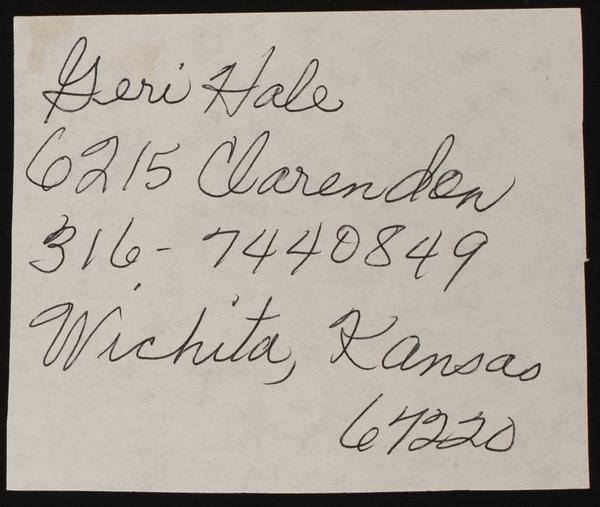 Geri Hale
6215 Clarendon
316-7440849
Wichita, Kansas
67220